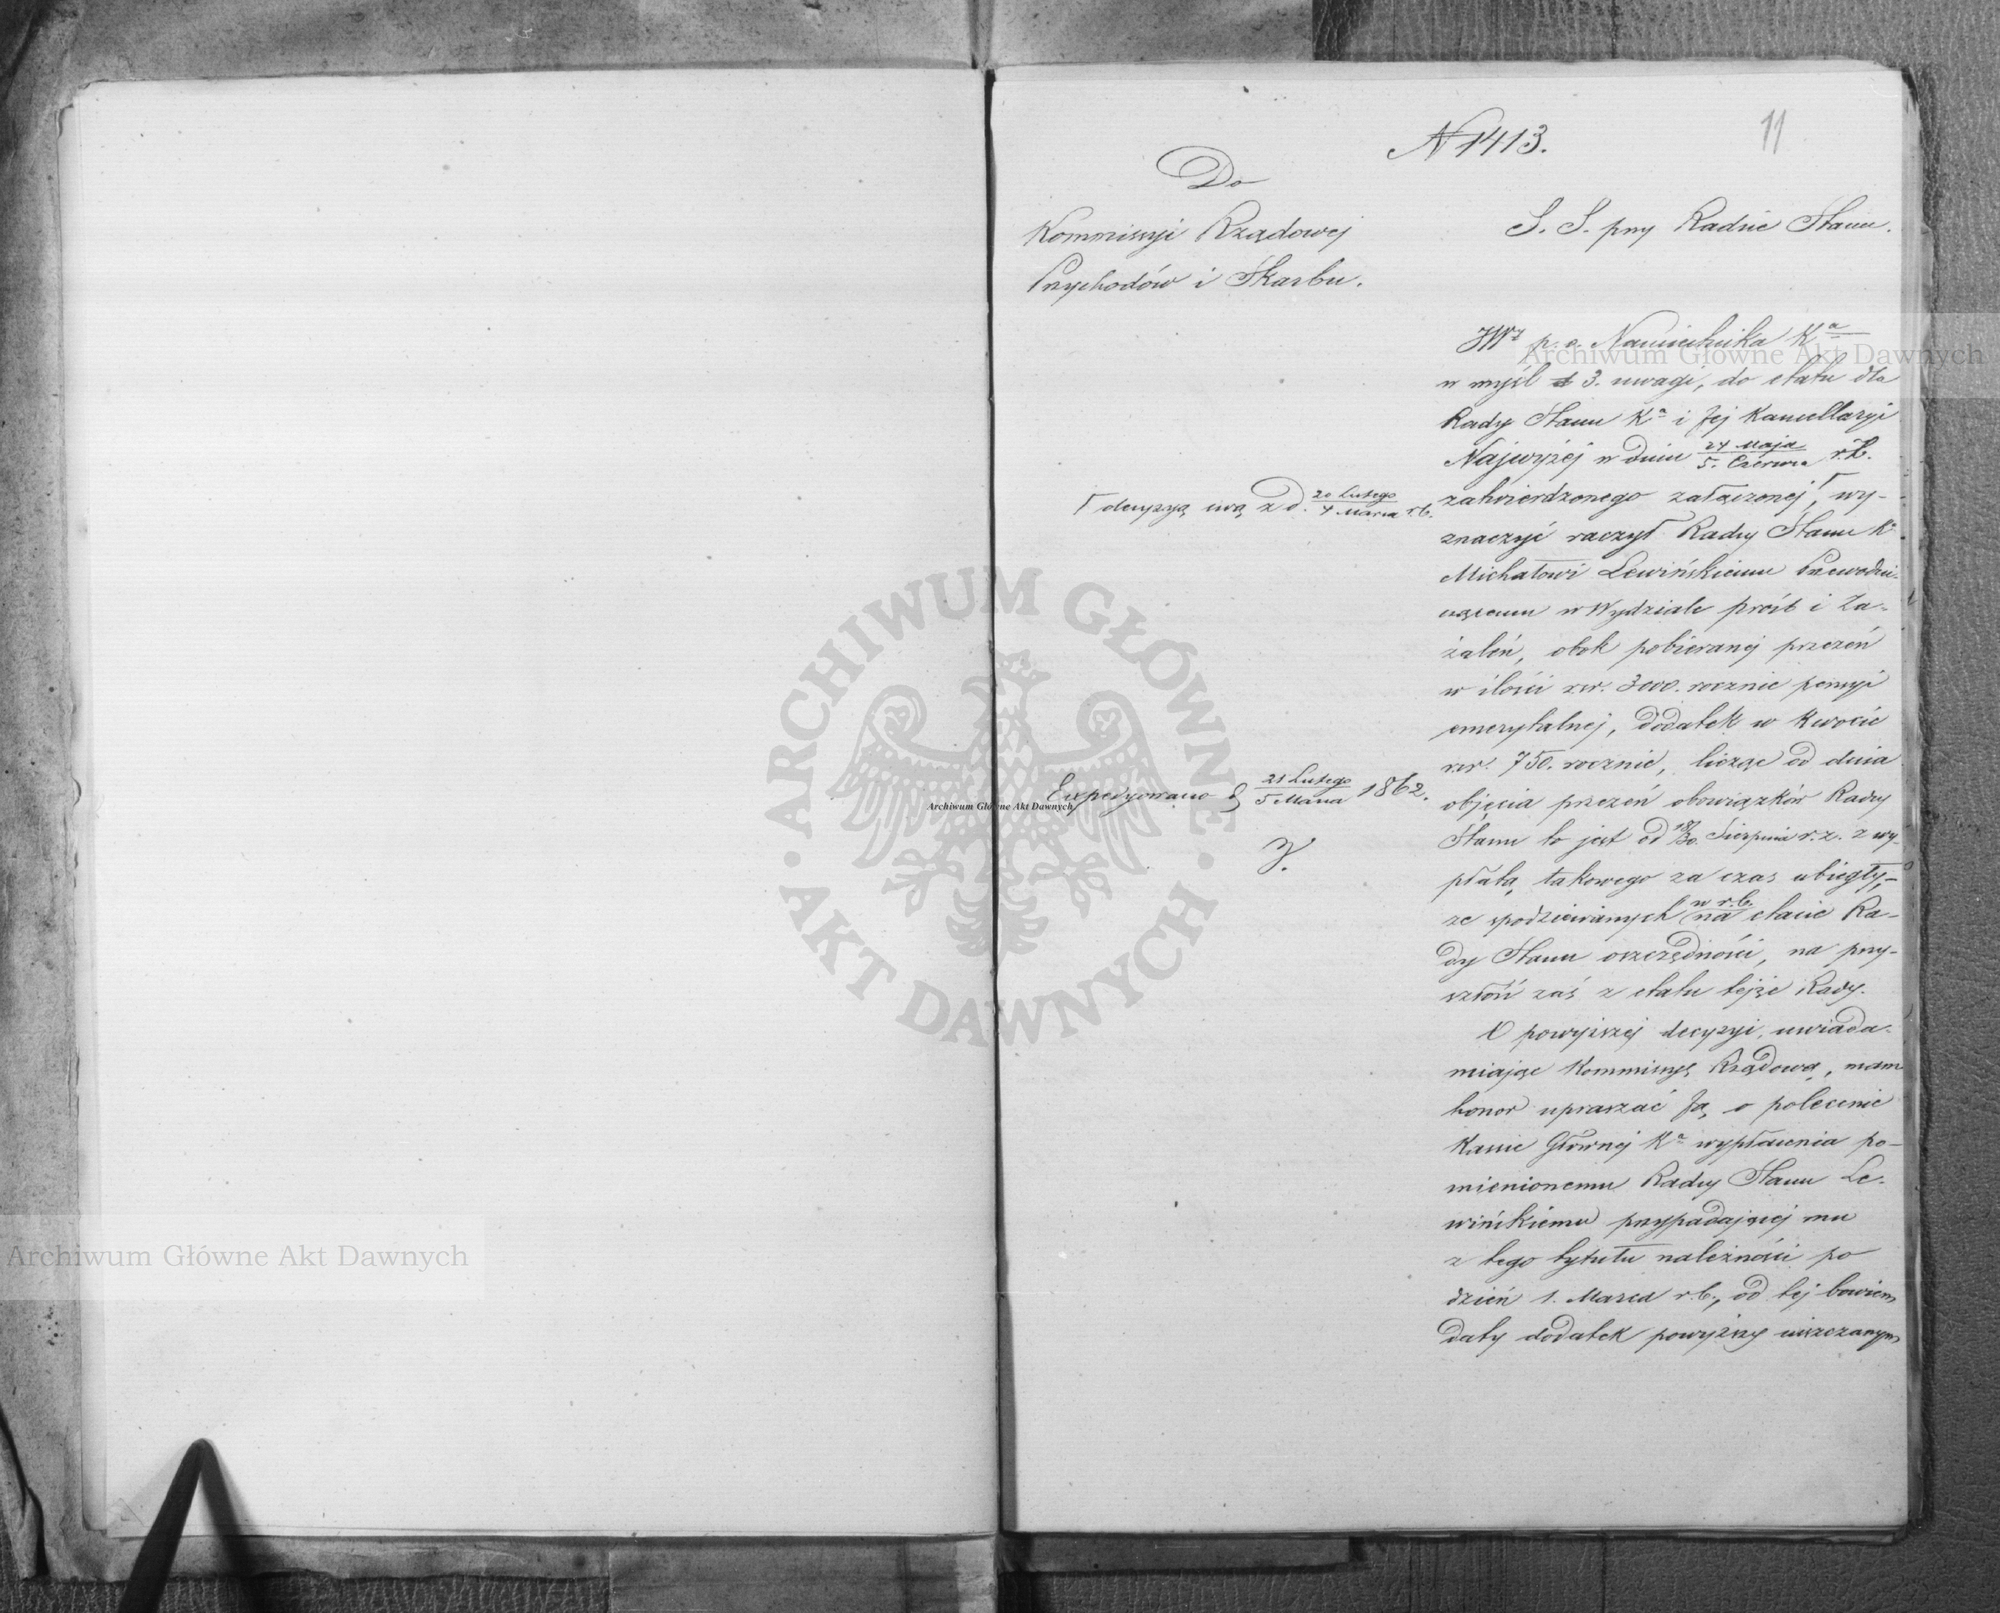 11
N 1413.
Do
Kommissyi Rządowej
Przychodów i Skarbu.
S. S. przy Radzie Stanu.
JW p. o. Namiestnika Kᵃ
w myśl 3. uwagi, do etatu dla
Rady Stanu Kᵃ i Jej Kancellaryi
Najwyżej w dniu 24 Maja / 5. Czerwca r. z.
zatwierdzonego załączonej, ⌈ wy-
⌈ decyzyą swą z d. 20 Lutego / 4 Marca r. b.
znaczyć raczył Radcy Stanu K
Michałowi Lewińskiemu Przewodni-
czącemu w Wydziale próśb i Za-
żaleń, obok pobieranej przezeń
w ilości rsr. 3000. rocznie pensyi
emerytalnej, dodatek w kwocie
rsr. 750. rocznie, licząc od dnia
objęcia przezeń obowiązków Radcy
Stanu to jest od 18/30. Sierpnia r. z. z wy-
płatą takowego za czas ubiegły,
ze spodziewanych w r. b. na etacie Ra-
dy Stanu oszczędności, na przy-
szłość zaś z etatu tejże Rady.
Expedyowano d 21 Lutego / 5 Marca 1862.
O powyższej decyzyi, uwiada-
miając Kommissyę Rządową, mam
honor upraszać Ją o polecenie
Kassie Głównej Kᵃ wypłacenia po-
mienionemu Radcy Stanu Le-
wińskiemu przypadającej mu
z tego tytułu należności po
dzień 1. Marca r. b., od tej bowiem
daty dodatek powyższy uiszczanym
Archiwum Główne Akt Dawnych
Archiwum Główne Akt Dawnych
Archiwum Główne Akt Dawnych
ARCHIWUM GŁÓWNE
AKT DAWNYCH